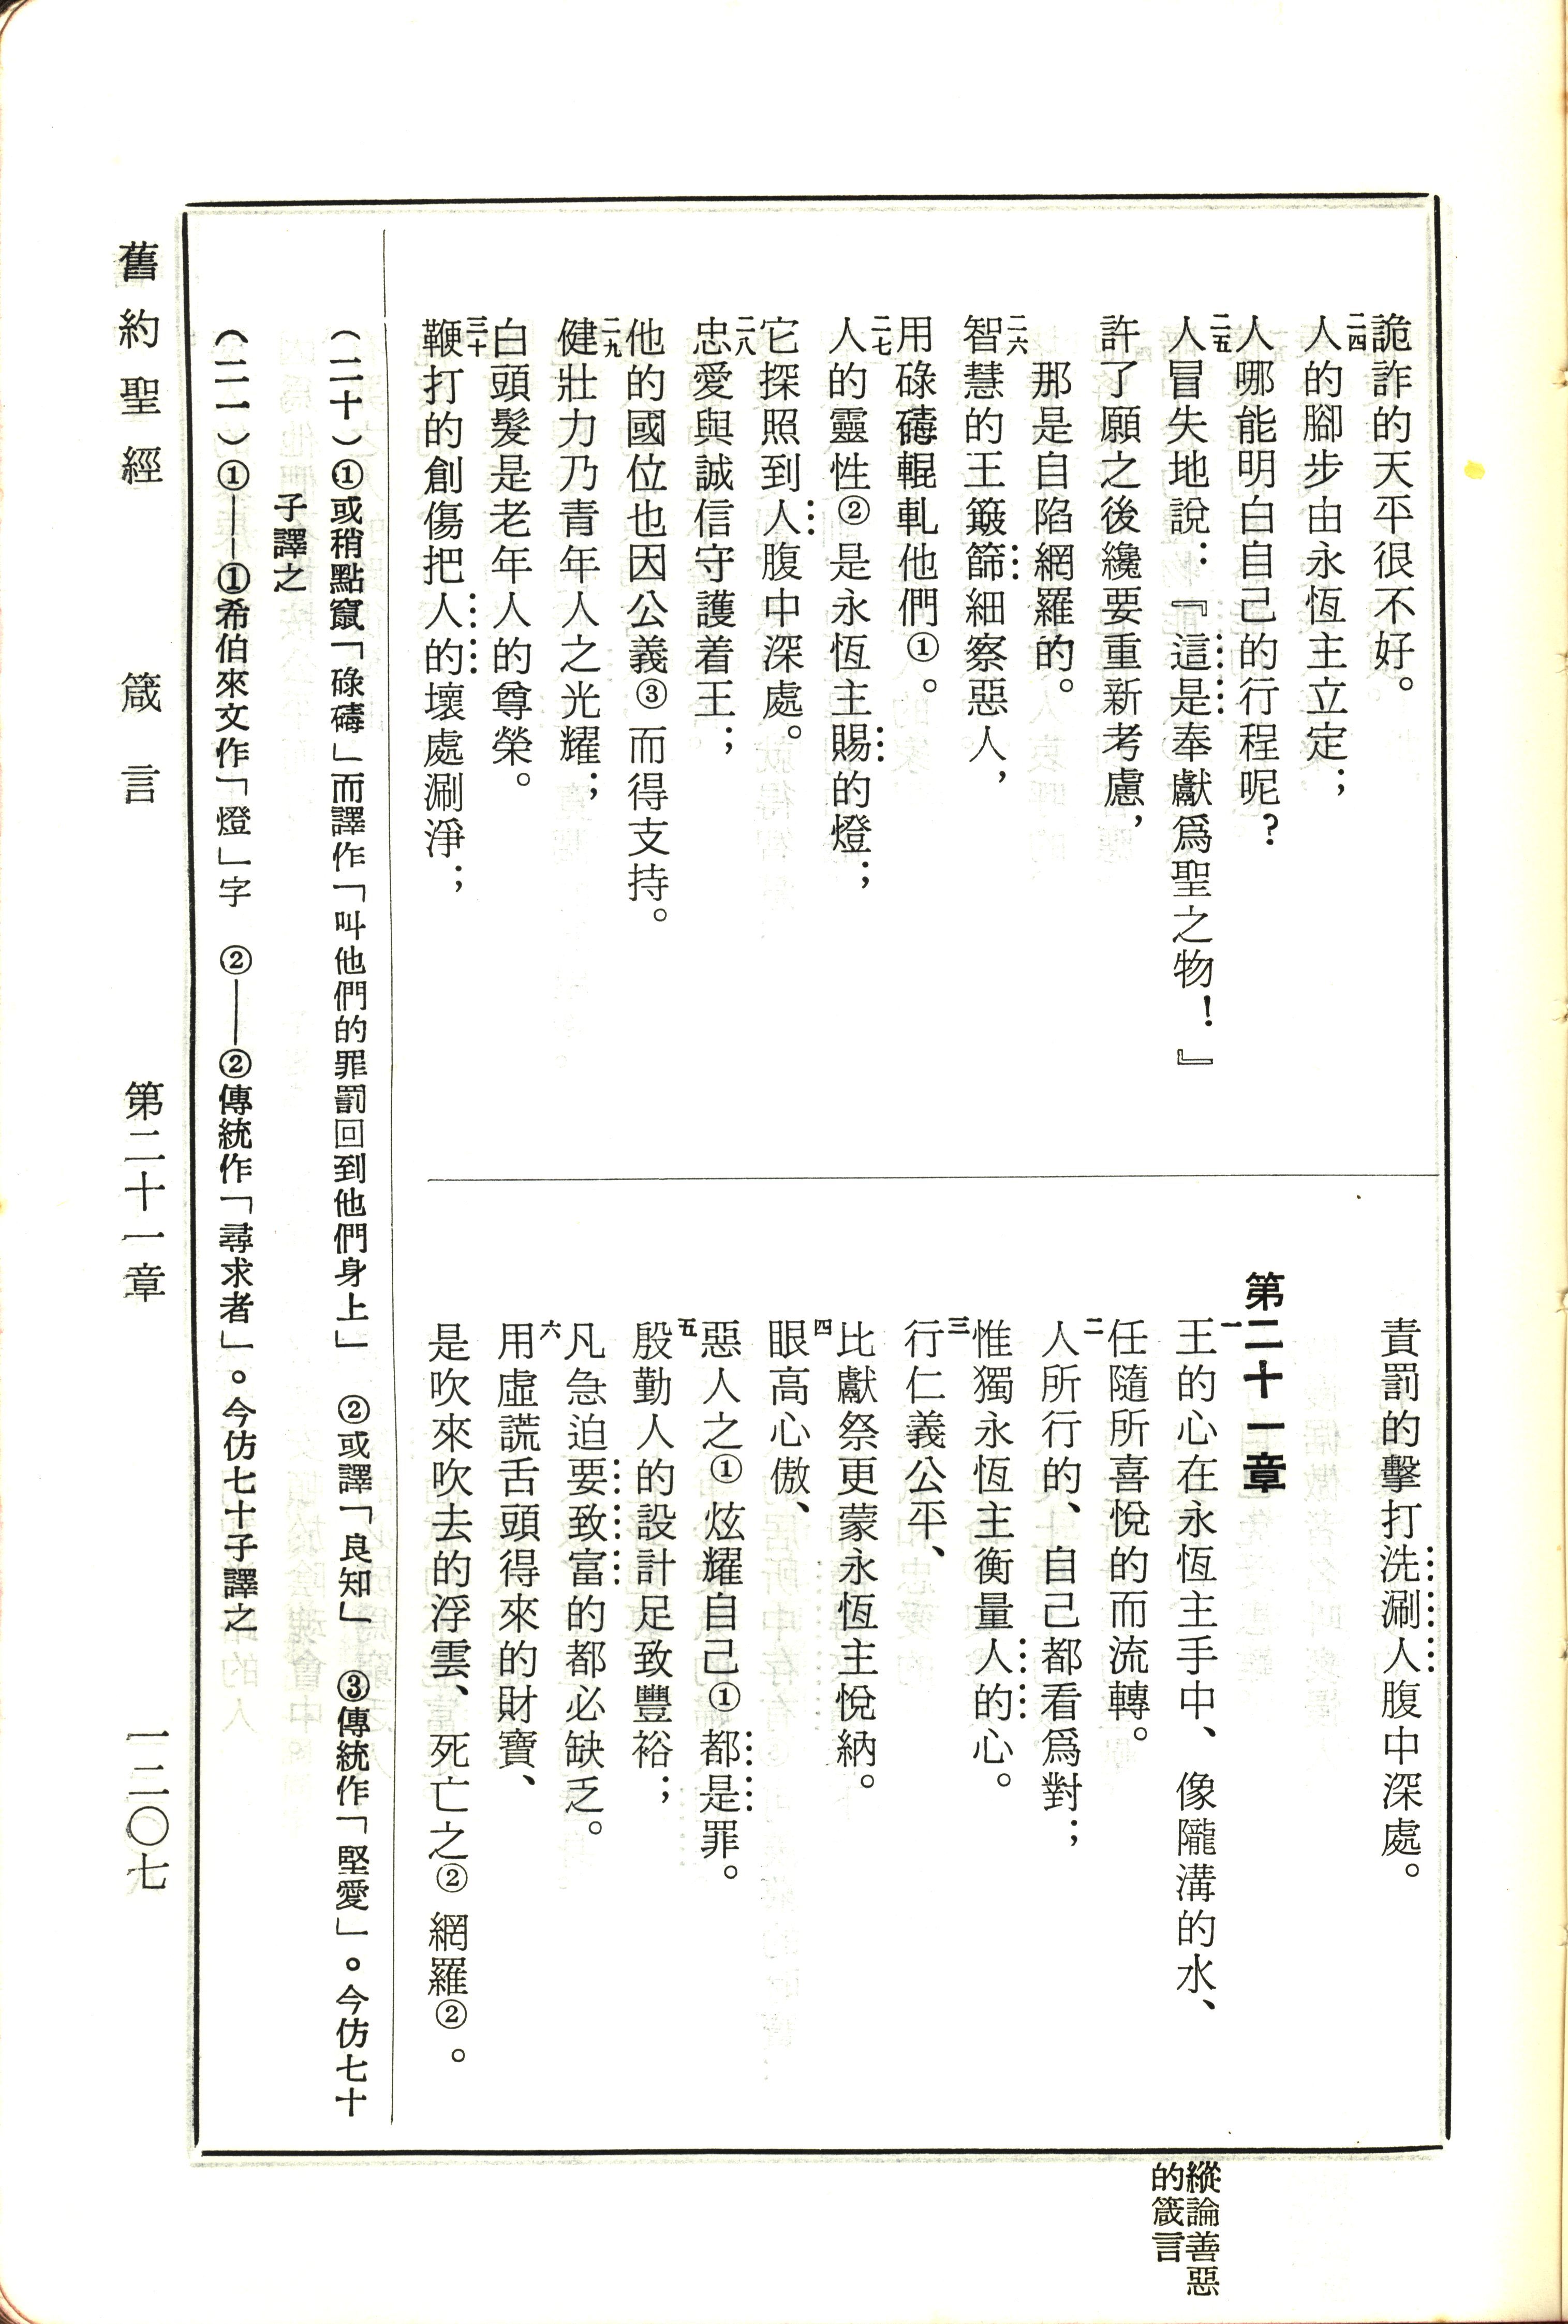 詭詐的天平很不好。
二四人的腳步由永恆主立定；
人哪能明白自己的行程呢？
二五人冒失地說：『這是奉獻爲聖之物！』
許了願之後纔要重新考慮，
那是自陷網羅的。
二六智慧的王簸篩細察惡人，
用碌碡輥軋他們①。
二七人的靈性②是永恆主賜的燈；
它探照到人腹中深處。
二八忠愛與誠信守護着王；
他的國位也因公義③而得支持。
二九健壯力乃青年人之光耀；
白頭髮是老年人的尊榮。
三十鞭打的創傷把人的壞處涮淨；
責罰的擊打洗涮人腹中深處。
第二十一章
一王的心在永恆主手中、像隴溝的水、
任隨所喜悅的而流轉。
二人所行的、自己都看爲對；
惟獨永恆主衡量人的心。
三行仁義公平、
比獻祭更蒙永恆主悅納。
四眼高心傲、
惡人之①炫耀自己①都是罪。
五殷勤人的設計足致豐裕；
凡急迫要致富的都必缺乏。
六用虛謊舌頭得來的財寶、
是吹來吹去的浮雲、死亡之②網羅②。
（二十）①或稍點竄「碌碡」而譯作「叫他們的罪罰回到他們身上」　②或譯「良知」　③傳統作「堅愛」。今仿七十
子譯之
（二一）①——①希伯來文作「燈」字　②——②傳統作「尋求者」。今仿七十子譯之
舊約聖經　箴言　第二十一章　一二〇七
縱論善惡
的箴言